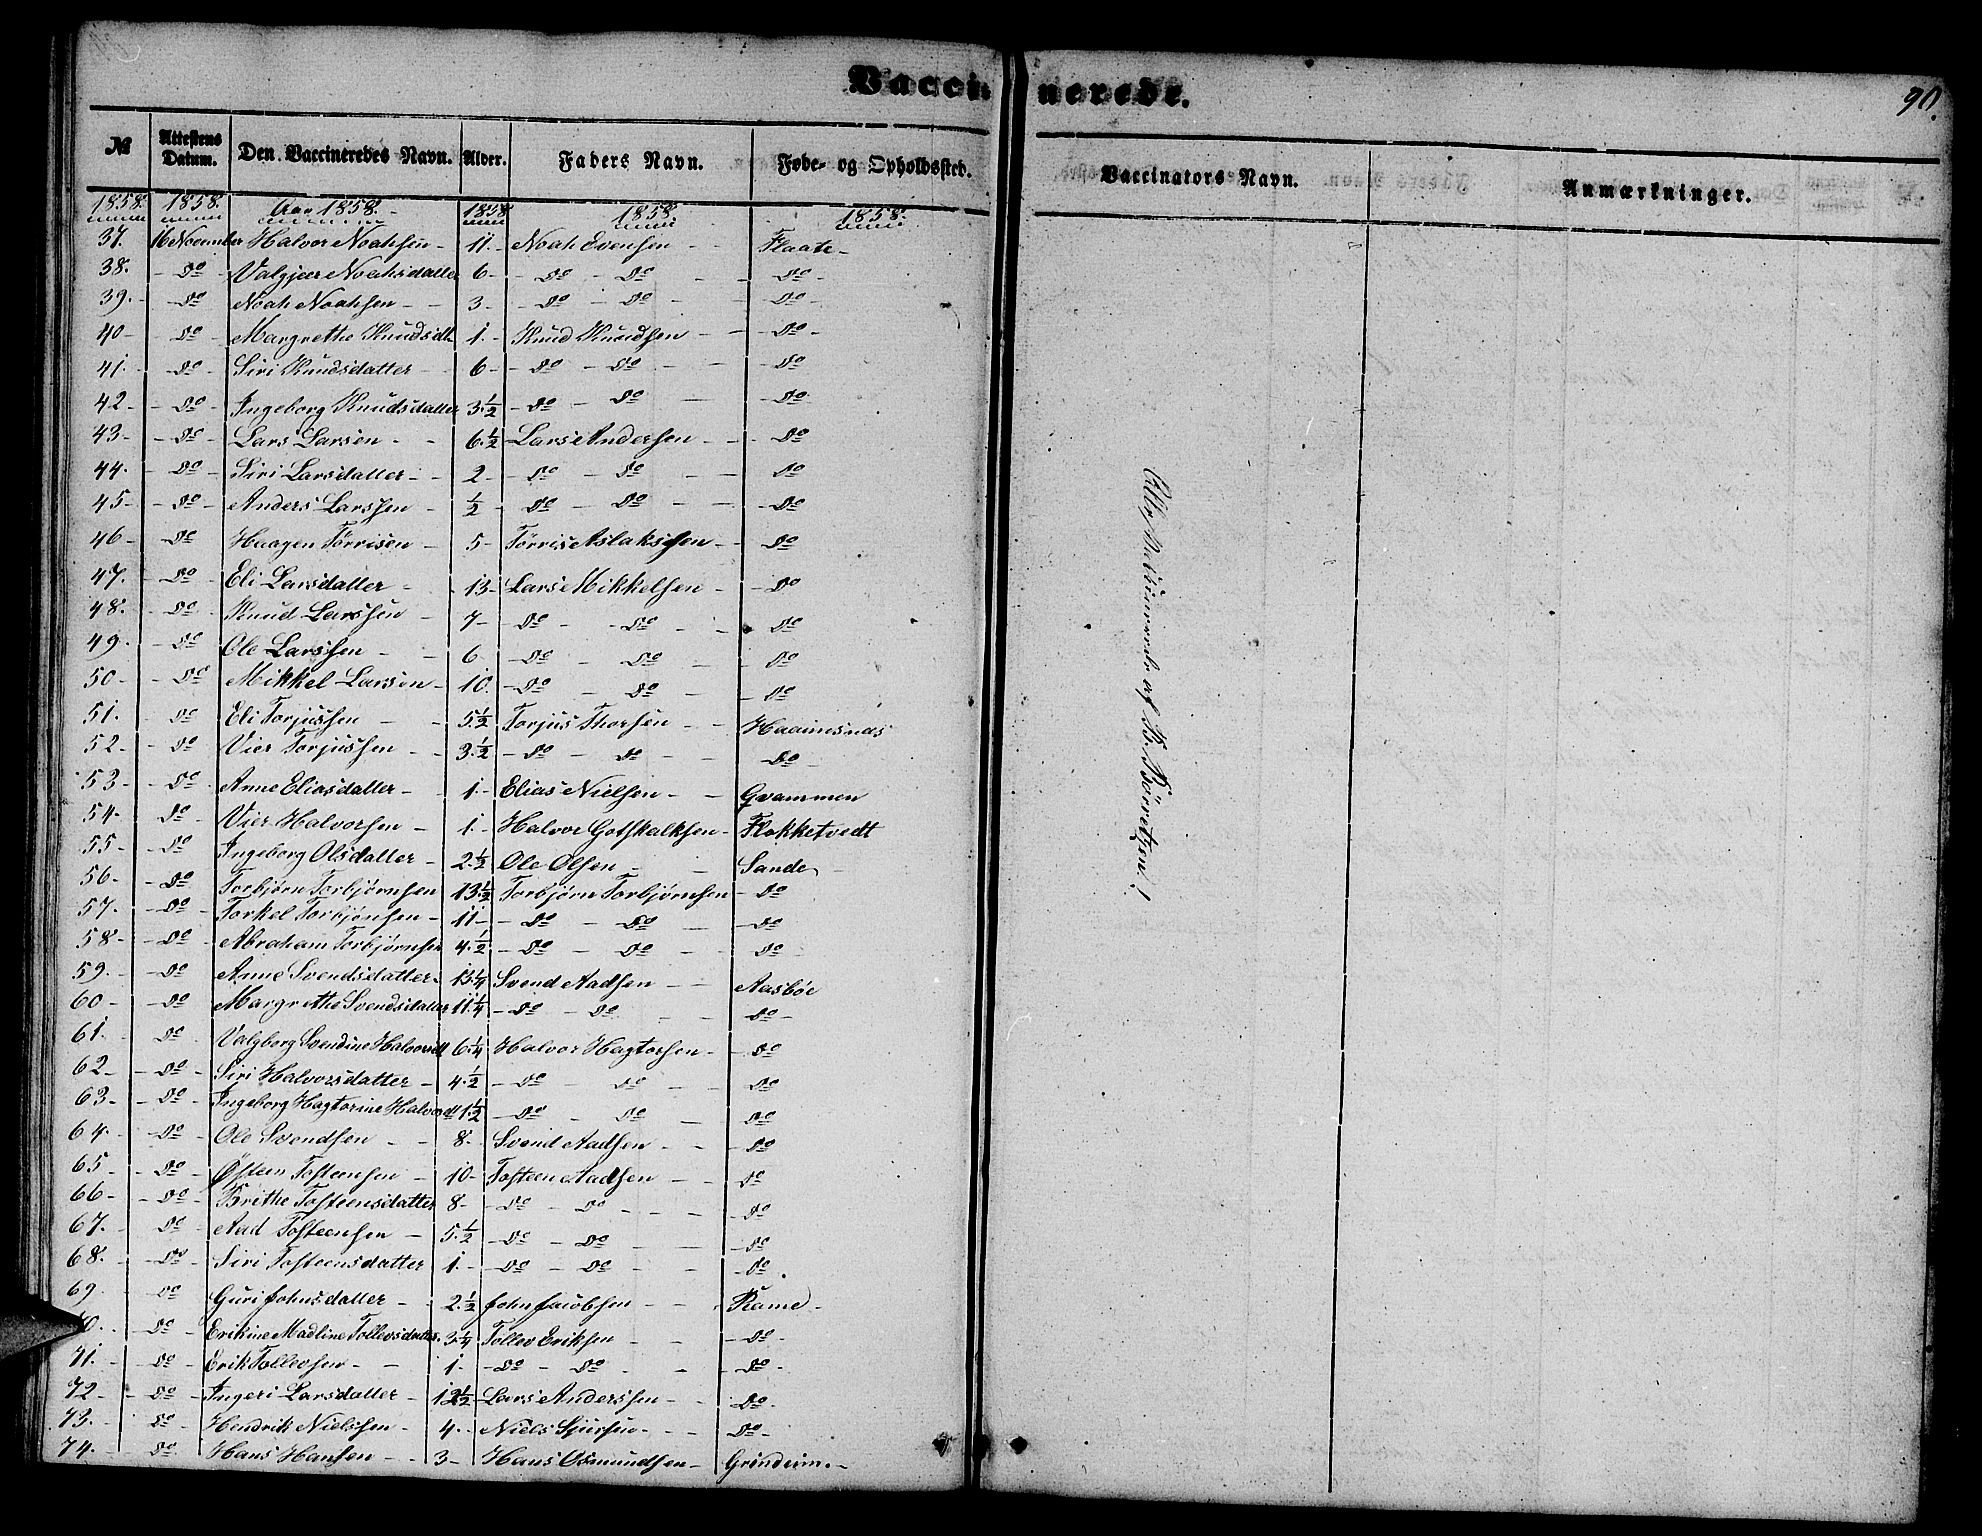 Vaccinerede.
90.
№ Attestens Datum. Den Vaccineredes Navn. Alder. Faders Navn. Føde- og Opholdssted. Vaccinators Navn. Anmærkninger.
1858. 1858. Aar 1858. 1858 1858. 1858.
37. 16 November Halvor Noahsen - 11. - Noah Evensen - - Flaate -
38. - Do - Valgjær Noahsdatter 6 - - Do - Do - - Do -
39. - Do - Noah Noahsen - - 3 - - Do - Do - - Do -
40 - - Do - Margrethe Knudsdt. 1. - Knud Knudsen - - - Do -
41. - Do - Siri Knudsdatter - 6 - - Do - Do - - Do -
42 - - Do - Ingeborg Knudsdatter 3½ - Do - Do - - Do -
43 - - Do - Lars Larsen - - 6.½ Lars Andersen - - - Do
44. - Do - Siri Larsdatter - - 2 - - Do - Do - - Do
45 - - Do - Anders Larssen - ½ - Do - Do - - Do
46 - - Do - Haagen Törrisen - 5 - Törris Aslaksen - - Do
47. - Do - Eli Larsdatter - 13 - Lars Mikkelsen - - Do
48. - Do - Knud Larssen - 7 - - Do - - Do - - Do
49. - Do - Ole Larssen - - 6 - Do - Do - - Do
50 - - Do - Mikkel Larsen - 10. - Do - Do - - Do
51. - Do - Eli Torjussen - - 5½ Torjus Thorsen - - Haaimsnds
52 - - Do - Vier Torjussen - - 3.½ - Do - Do - - Do -
53 - - Do - Anne Eliasdatter - 1. - Elias Nielsen - - Qvammen
54. - Do - Vier Halvorsen - 1. - Halvor Gotskalksen - Flokketvedt
55 - - Do - Ingeborg Olsdatter - 2.½ Ole Olsen - - Sande -
56 - - Do - Torbjørn Torbjørnsen 13.½ Torbjørn Torbjørnsen - Do
57. - Do - Torkel Torbjönsen - 11 - - Do - Do - - Do
58 - - Do - Abraham Torbjørnsen 4.½ - Do - Do - - Do
59. - Do - Anne Svendsdatter. 13¼ Svend Aadsen - - Aasböe
60 - - Do - Margrethe Svendsdatter 11¼ - Do - Do - - - Do -
61. - Do - Valgborg Svendine Halvorsdt 6.¼ Halvor Hagtorsen - - Do
62 - - Do - Siri Halvorsdatter - 4.½ - Do - Do - - - Do
63 - - Do - Ingeborg Hagtorine Halvorsdt 1½ - Do - Do - - Do
64. - Do - Ole Svendsen - - 8. - Svend Aadsen - - - Do
65 - - Do - Östen Tosteensen - 10 - Tosteen Aadsen - - Do
66 - - Do - Brithe Tosteensdatter 8 - - Do - Do - - - - Do
67. - Do - Aad Tosteensen - 5.½ - Do - Do - - - Do
68. - Do - Siri Tosteensdatter 1. - - Do - Do - - - Do.
69 - Do - Guri Johnsdatter - 2.½ John Jacobsen - - - Rame -
70. - - Do - Erikine Madline Tollevsdatter. 3.¼ Tollev Eriksen - - Do -
71. - - Do - Erik Tollevsen - - 1. - Do - Do - - - Do -
72 - - Do - Ingeri Larsdatter - 12½ Lars Anderssen - - - Do -
73. - - Do - Hendrik Nielssen - 4. - Niels Sjursen - - - - Do -
74. - - Do - Hans Hansen - - 3 - Hans Osmundsen - Gröndeim. -
Alle Vaccinerede af B. Börretzen!